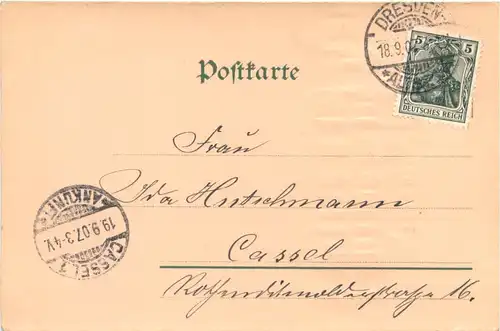 DRESDEN
18.9.0
5 5
DEUTSCHES REICH
Postkarte
Frau
Ida Hutschmann
Cassel
Rothenditmolderstraße 16.
ANKUNFT
19.9.07.3-4V.
CASSEL 1